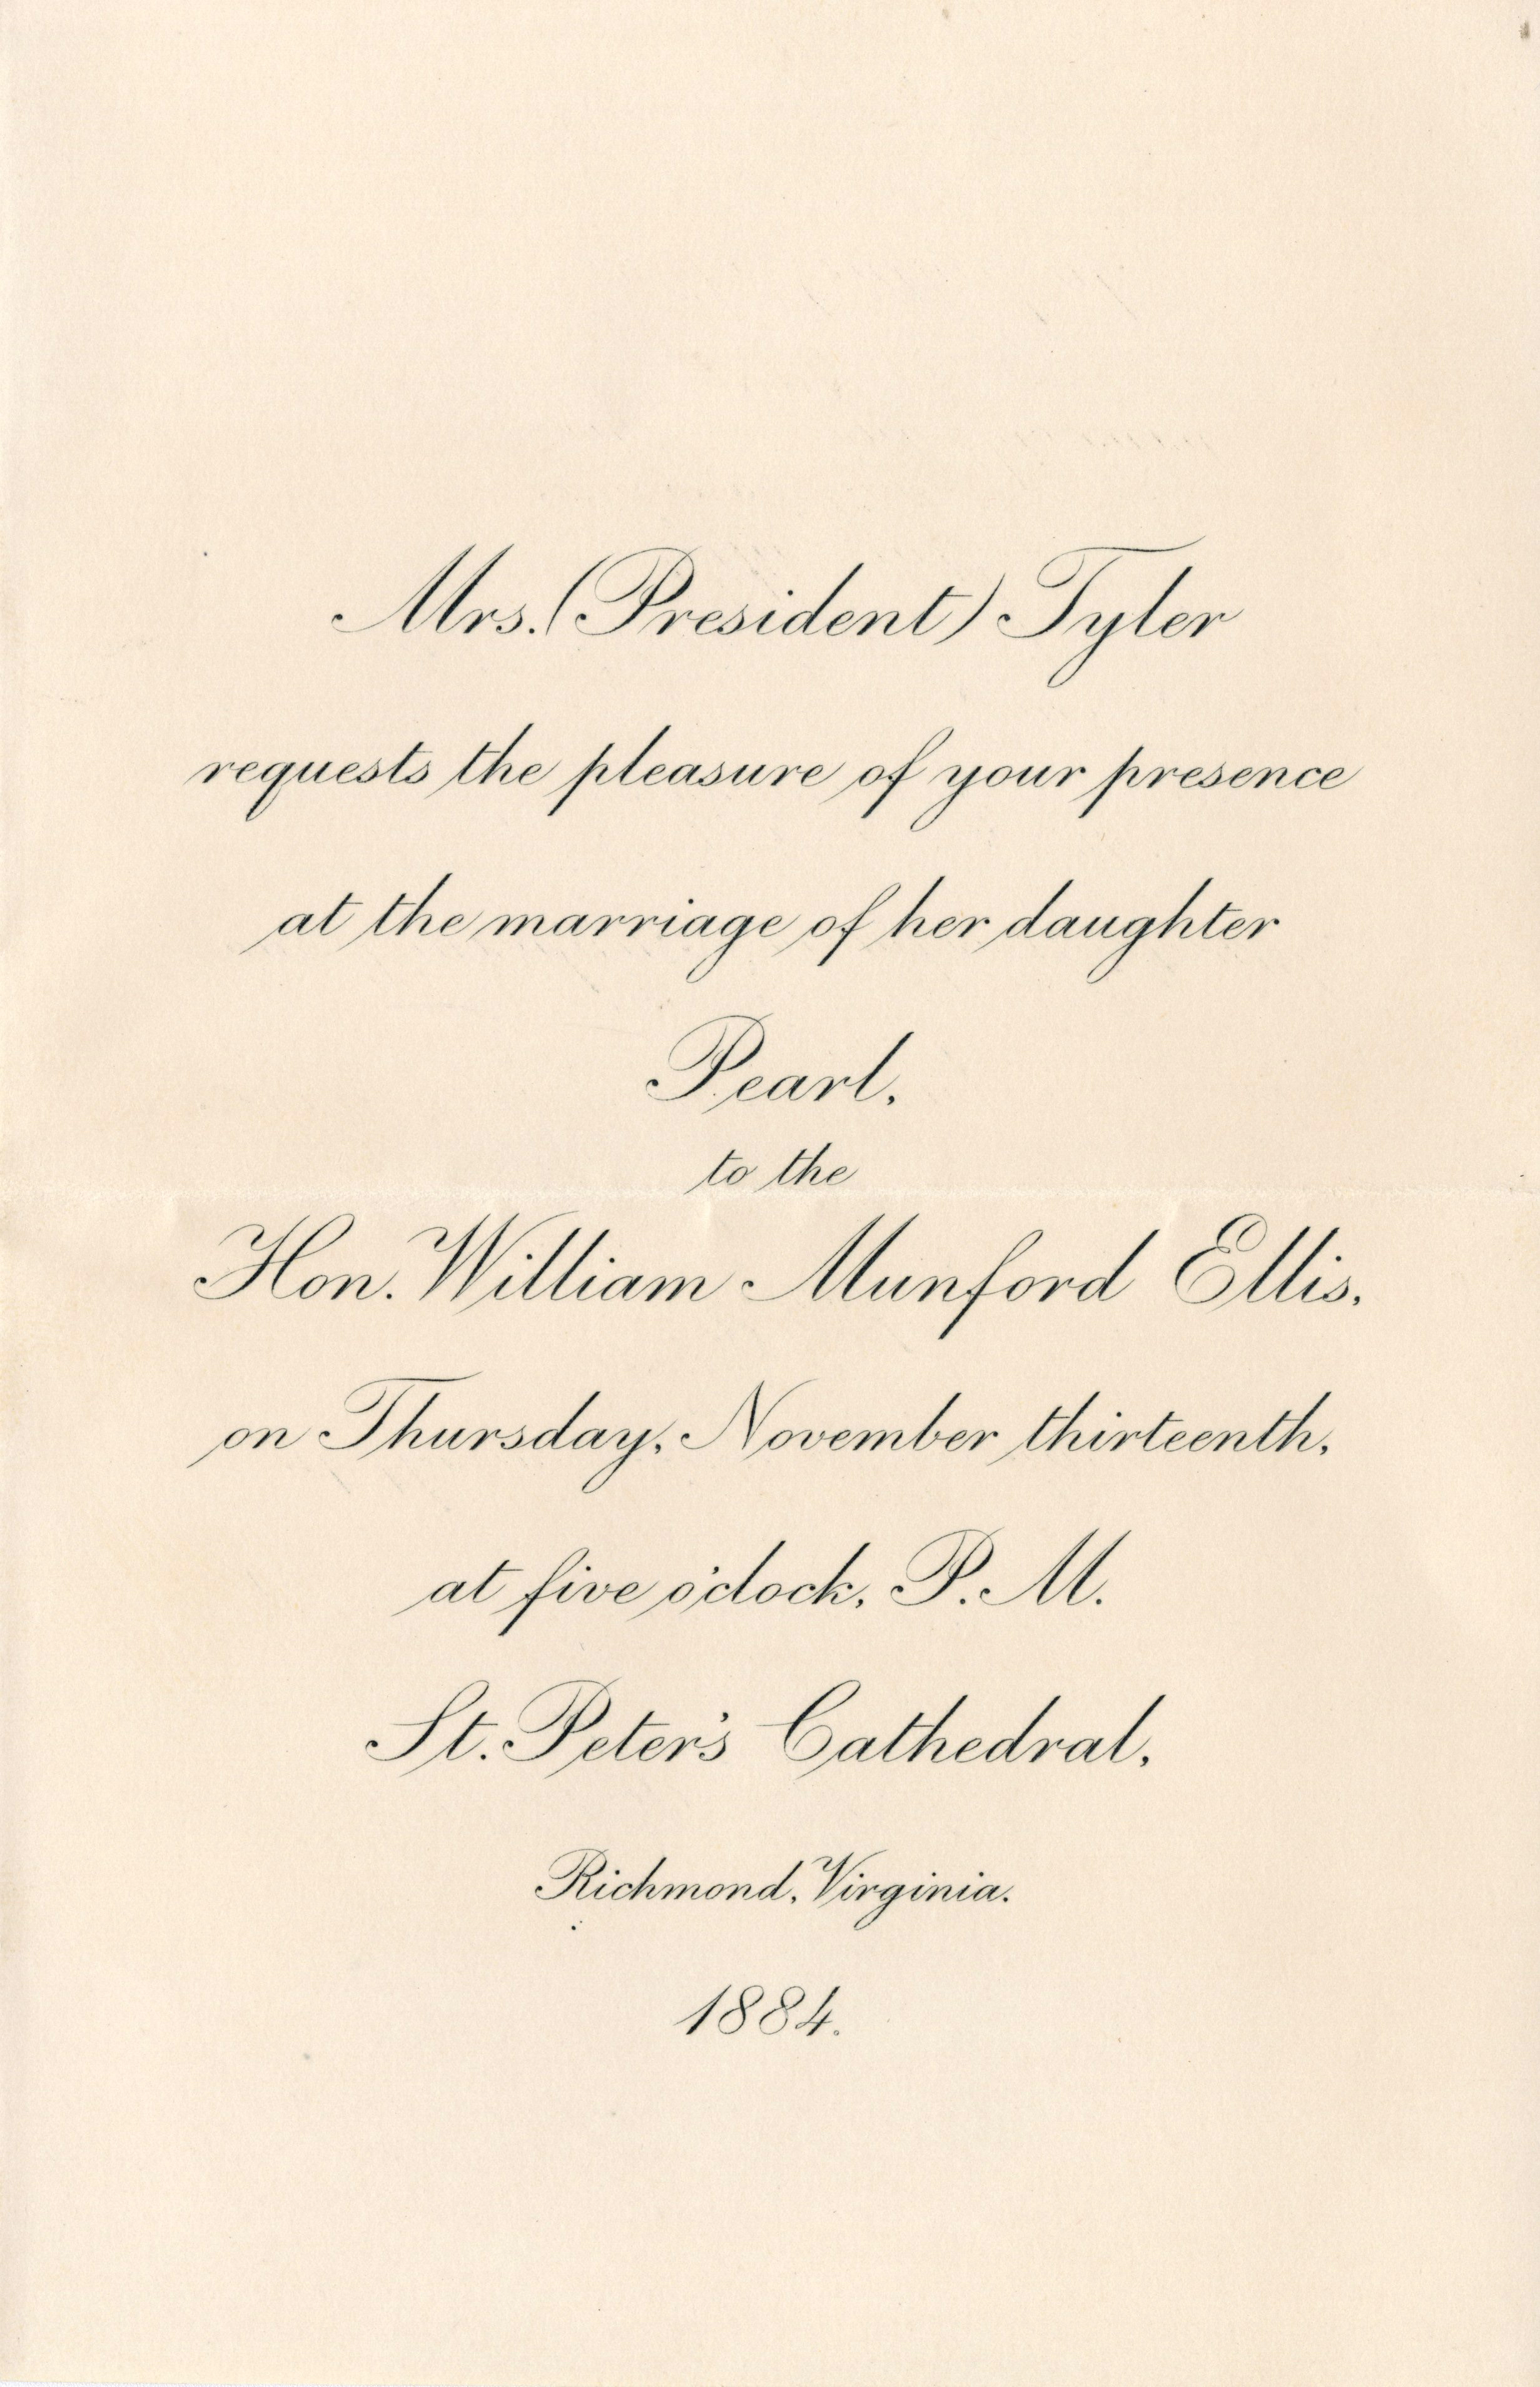 Mrs. (President) Tyler
requests the pleasure of your presence
at the marriage of her daughter
Pearl,
to the
Hon. William Munford Ellis,
on Thursday, November thirteenth,
at five o'clock, P. M.
St. Peter's Cathedral,
Richmond, Virginia.
1884.